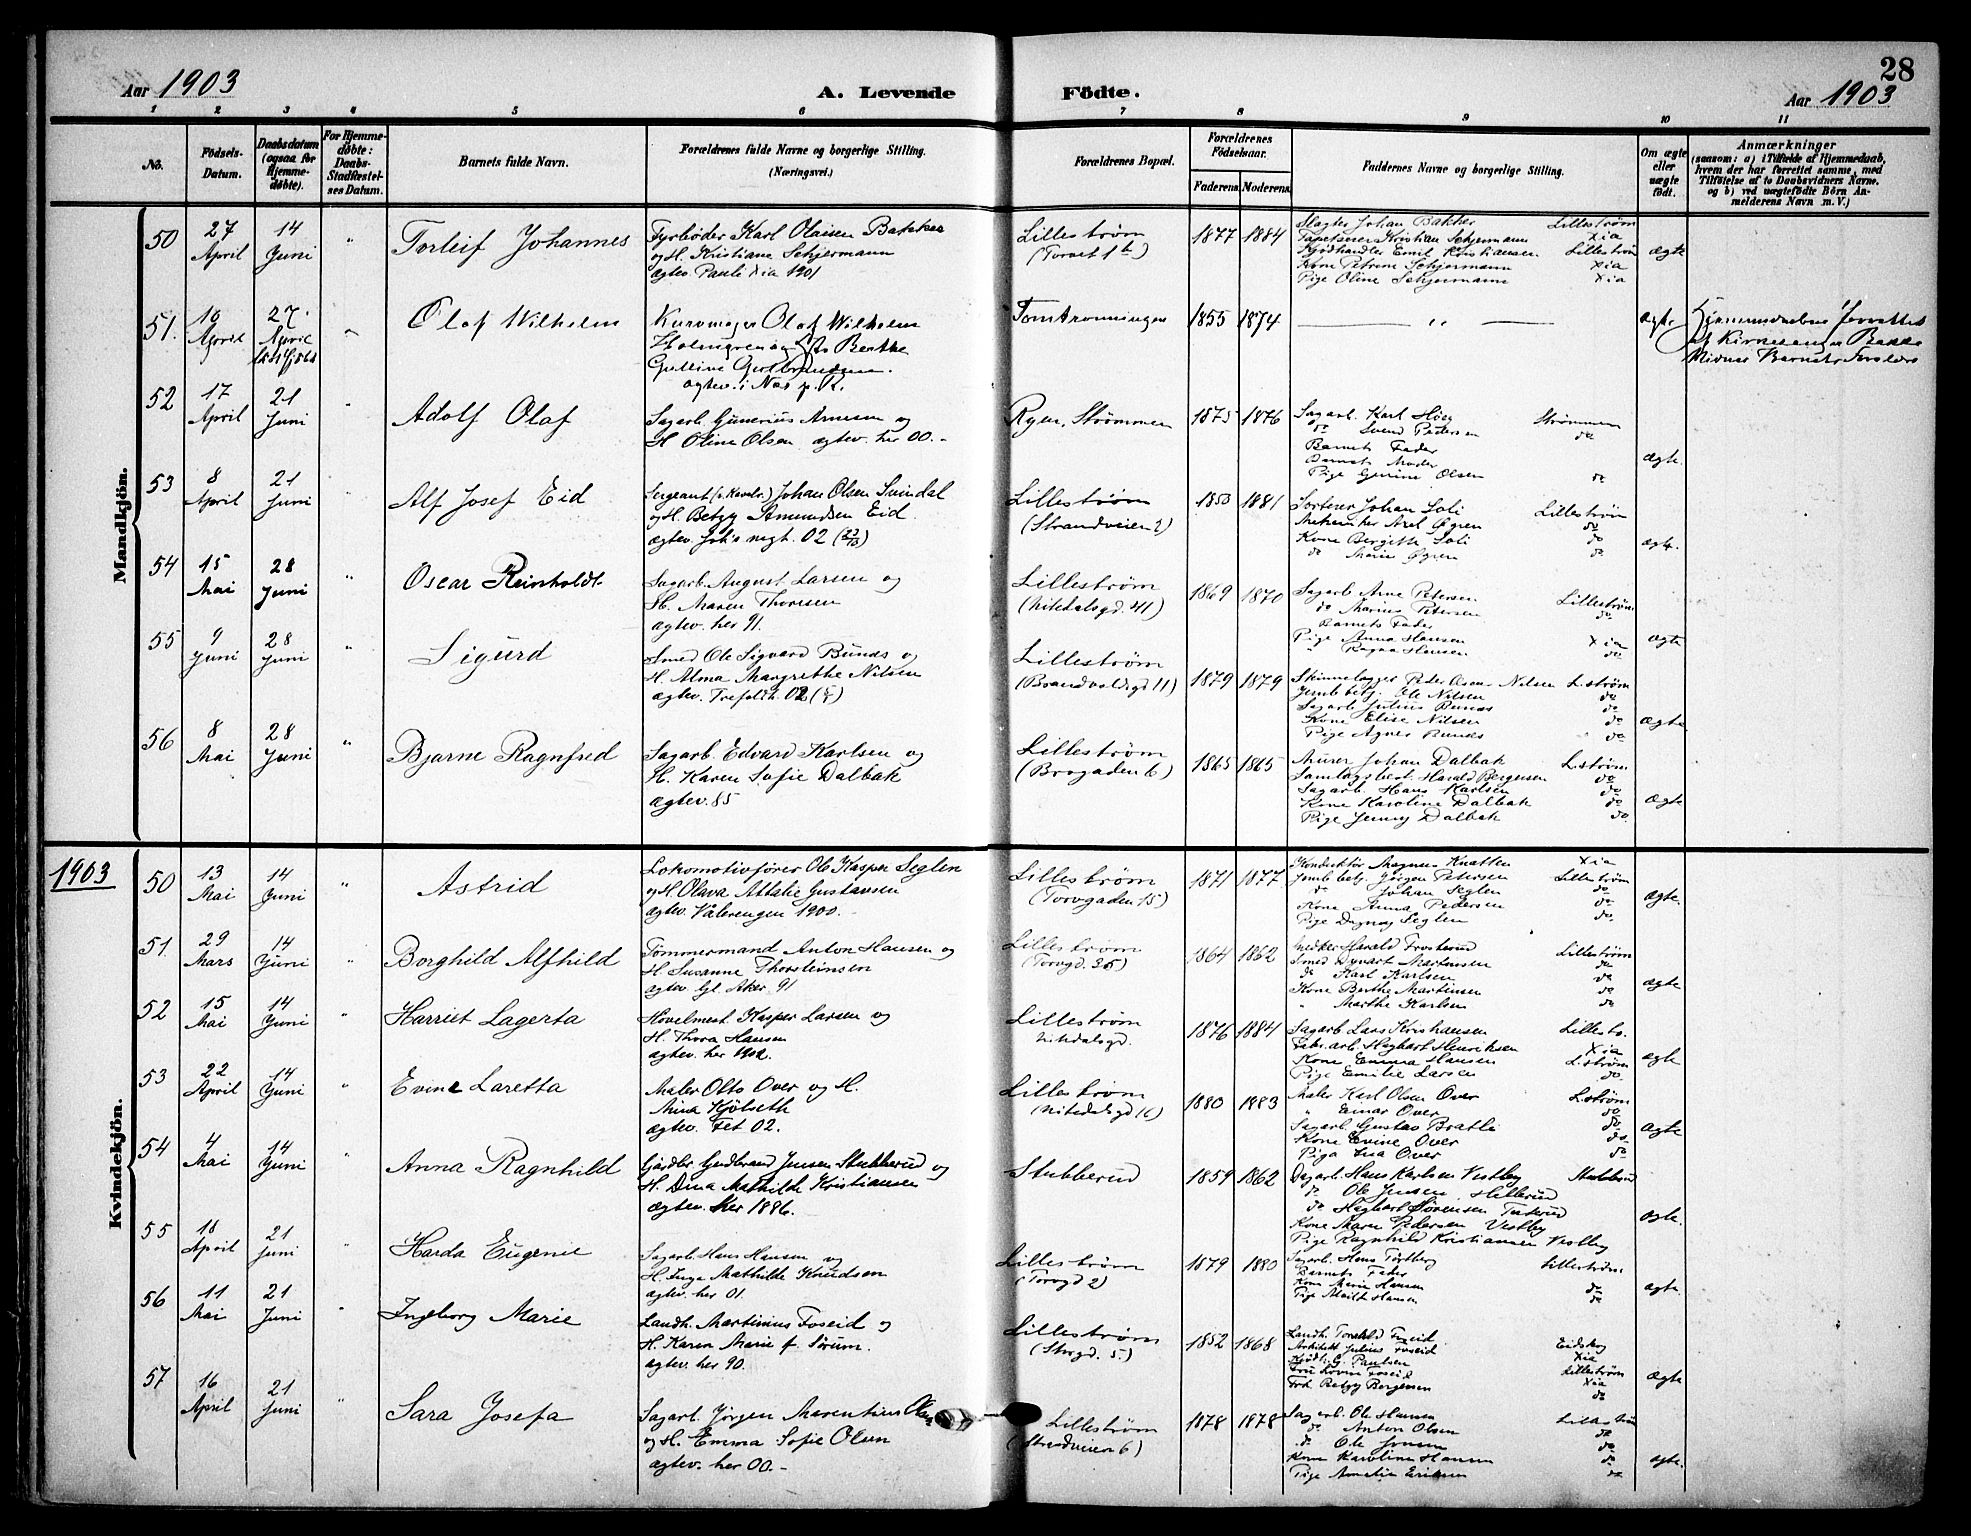 28
Aar 1903
A. Levende Födte.
Aar 1903
1 2 3 4 5 6 7 8 9 10 11
No.
Födsels-Datum.
Daabsdatum (ogsaa for Hjemmedøbte).
For Hjemmedøbte: Daabs-Stadfæstelses Datum.
Barnets fulde Navn.
Forældrenes fulde Navne og borgerlige Stilling.
(Næringsvei.)
Forældrenes Bopæl.
Forældrenes Födselsaar.
Faderens. Moderens.
Faddernes Navne og borgerlige Stilling.
Om ægte eller uægte födt.
Anmærkninger
(saasom: a) i Tilfælde af Hjemmedaab,
hvem der har forrettet samme, med
Tilföielse af to Daabsvidners Navne.
og b) ved uægtefödte Börn Anmelderens Navn m. V.)
Mandkjön.
50 27 April 14 Juni " Torleif Johannes
Fyrbøder Karl Olaisen Bakke
og H. Kristiane Schjermann
ægtev. Pauli Xia 1901
Lillestrøm
(Torvet 1)
1877 1884
Slagter Johan Bakker Lillestrøm
Tapetserer Kristian Schjermann Xia
Emil Kristiansen Lillestrøm
Kone Petrine Schjermann Xia
Pige Oline Schjermann Xia
ægte
51. April 27 April Olaf Wilhelm
Kurvmager Olaf Wilhelm
Holmgren og Berthe
Gulline Gulbrandsen.
ægtev. i Nes p. K.
1855 1874
ægte
52 17 April 21 Juni " Adolf Olaf
Sagarb. Gunerius Arnesen og
H. Oline Olsen ægtev. her 00.-
Ryen, Strømmen
1875 1876
Sagarb. Karl Høeg Strømmen
do Svend Pedersen do
Barnets Fader
Barnets Moder
Pige Gunine Olsen do
ægte.
53 8 April 21 Juni " Alf Josef Eid
Sergeant Johan Olsen Svindal
og H. Betzy Amundsen Eid.
ægtev. Joh's mgt. 02
Lillestrøm
(Strandveien 2)
1881
Sorterer Johan Soli Lillestrøm
Axel Øgren do
Kone Bergitte Soli do
do Marie Øgren do
ægte.
54 15 Mai 28 Juni " Oscar Reinholdt
Sagarb. August Larsen og
H. Maren Thoresen
ægtev. her 91.
Lillestrøm
(Nitedalsgd. 41)
1869 1870
Sagarb. Arne Petersen Lillestrøm
do Marius Petersen do
Barnets Fader
Pige Anna Hansen Xia
" Ragna Hansen do
ægte
55 9 Juni 28 Juni " Sigurd
Smed Ole Sigvard Bunæs og
H. Alma Margrethe Nilsen
ægtev. Trefoldh. 02
Lillestrøm
(Brandvoldsgd 11)
1879 1879
Peder Nilsen L.strøm
Jernb.betj. Ole Nilsen do
Sagarb. Julius Bunæs do
Kone Elise Nilsen do
Pige Agnes Bunæs do
ægte
56 8 Mai 28 Juni " Bjarne Ragnfred
Sagarb. Edvard Karlsen og
H. Karen Sofie Dalbak
ægtev. 85
Lillestrøm
(Brogaden 6)
1865 1865
Murer Johan Dalbak L.strøm
Samlagsbest. Harald Bergersen do
Sagarb. Hans Karlsen do
Kone Karoline Dalbak do
Pige Jenny Dalbak do.
ægte
1903
Kvindekjön.
50 13 Mai 14 Juni " Astrid
Lokomotivfører Ole Kasper Seglen
og H. Olava Attalie Gustavsen
ægtev. Vålerengen 1900.-
Lillestrøm
(Torvgaden 15)
1871 1877
Konduktør Magnus Knatten Xia
Jernb.betj. Jørgen Petersen Lillestrøm
do Johan Seglen do
Kone Anna Pedersen do
Pige Dagny Seglen do.
ægte.
51. 29 Mars 14 Juni " Borghild Alfhild
Tømmermand Anton Hansen og
H. Susanne Thorsteinsen
ægtev. Gl. Aker 91
Lillestrøm
1864 1862
Harald Frosterud Lillestrøm
Smed Martinsen do
do Karl Karlsen do
Kone Berthe Martinsen do
" Marthe Karlsen do
ægte
52 15 Mai 14 Juni " Harriet Lagerta
Høvelmest. Kasper Larsen og
H. Thora Hansen
ægtev. her 1902.
Lillestrøm
Nitedalsgd.
1876 1884
Sagarb. Lars Kristiansen Lillestr.
Fabr.arb. Hagbart Henriksen Xia
Kone Emma Hansen L.strøm
Pige Emilie Larsen do.
ægte
53 22 April 14 Juni " Evine Laretta
Maler Otto Over og H.
Mina Kjølseth
ægtev. Fet 02.
Lillestrøm
1880 1883
Maler Karl Olsen Over L.strøm
" Einar Over do
Sagarb. Gustav Bratli do
Kone Evine Over do
Pige Over do
ægte
54 4 Mai 14 Juni " Anna Ragnhild
Gårdbr. Gudbrand Jensen Stubberud og
H. Dina Mathilde Kristiansen
ægtev. Aker 1886.
Stubberud
1859 1862
Dagarb. Hans Karlsen Vestby Stubberud
do Ole Jensen Hellerud
do Hagbart Sørensen
Kone Maren Pedersen Vestby
Pige Ragnhild Kristiansen Vestby
ægte.
55 18 April 21 Juni " Harda Eugenie
Sagarb. Hans Hansen og
H. Inga Mathilde Knudsen
ægtev. her 01.
Lillestrøm
(Torvgd 2)
1879 1880
Sagarb. Hans Torberg Lillestrøm
Barnets Fader
Kone Marie Hansen do
Pige Hansen do
ægte.
56 11 Mai 21 Juni " Ingeborg Marie
Landh. Martinius Foseid og
H. Karen Marie f. Sørum.
ægtev. her 90.
Lillestrøm
(Storgd. 5)
1852 1868
Landh. Foseid Eidskog
Arkitekt Julius Foseid Xia
G. Paulsen Lillestrøm
Foseid Xia
Frk. Betzy Bergersen do
ægte
57 16 April 21 Juni " Sara Josefa
Sagarb. Jørgen Marentius Olsen
og H. Emma Sofie Olsen
ægtev. her 00.-
Lillestrøm
(Strandveien 6)
1878 1878
Sagarb. Ole Hansen Lillestrøm
do. Anton Olsen do
do. Ole Jensen do
Kone Karoline Hansen do
Pige Amalie Eriksen do
ægte.